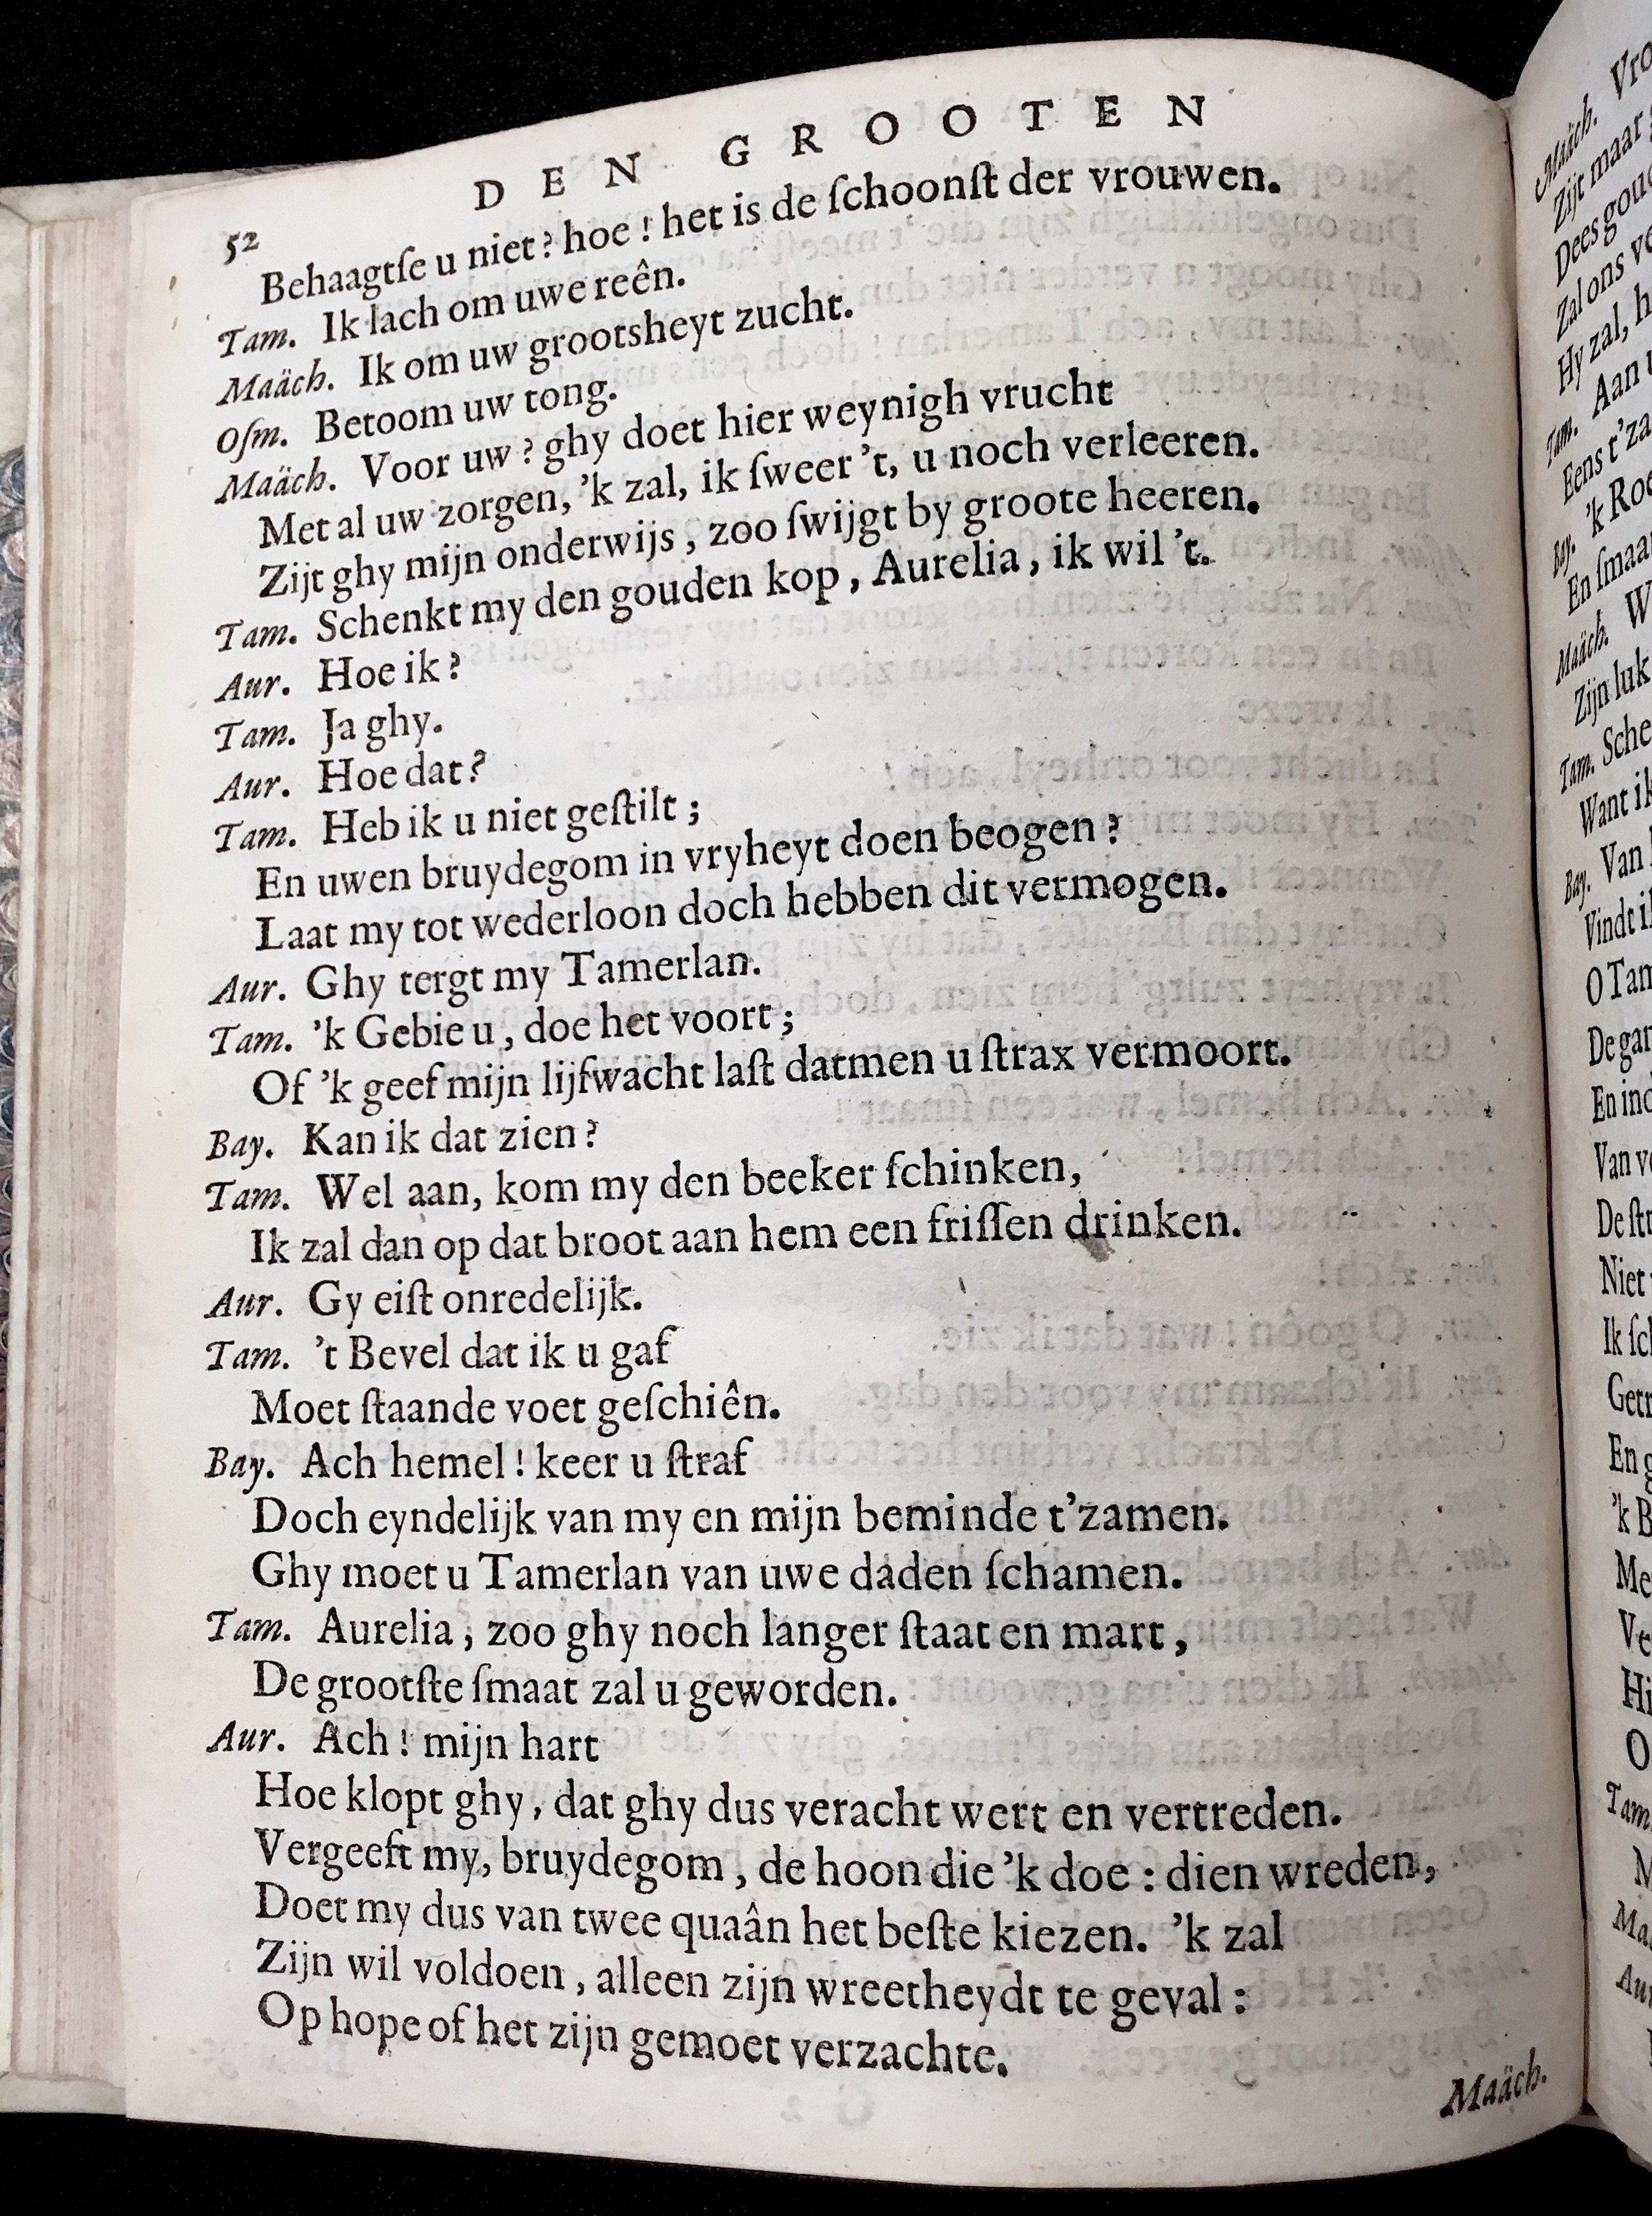 DEN GROOTEN
52
Behaagtſe u niet? hoe! het is de ſchoonſt der vrouwen.
Tam. Ik lach om uwe reên.
Maäch. Ik om uw grootsheyt zucht.
Oſm. Betoom uw tong.
Maäch. Voor uw? ghy doet hier weynigh vrucht
Met al uw zorgen, 'k zal, ik ſweer 't, u noch verleeren.
Zijt ghy mijn onderwijs, zoo ſwijgt by groote heeren.
Tam. Schenkt my den gouden kop, Aurelia, ik wil 't.
Aur. Hoe ik?
Tam. Ja ghy.
Aur. Hoe dat?
Tam. Heb ik u niet geſtilt;
En uwen bruydegom in vryheyt doen beogen?
Laat my tot wederloon doch hebben dit vermogen.
Aur. Ghy tergt my Tamerlan.
Tam. 'k Gebie u, doe het voort;
Of 'k geef mijn lijfwacht laſt datmen u ſtrax vermoort.
Bay. Kan ik dat zien?
Tam. Wel aan, kom my den beeker ſchinken,
Ik zal dan op dat broot aan hem een friſſen drinken.
Aur. Gy eiſt onredelijk.
Tam. 't Bevel dat ik u gaf
Moet ſtaande voet geſchiên.
Bay. Ach hemel! keer u ſtraf
Doch eyndelijk van my en mijn beminde t'zamen.
Ghy moet u Tamerlan van uwe daden ſchamen.
Tam. Aurelia, zoo ghy noch langer ſtaat en mart,
De grootſte ſmaat zal u geworden.
Aur. Ach! mijn hart
Hoe klopt ghy, dat ghy dus veracht wert en vertreden.
Vergeeft my, bruydegom, de hoon die 'k doe: dien wreden,
Doet my dus van twee quaân het beſte kiezen. 'k zal
Zijn wil voldoen, alleen zijn wreetheydt te geval:
Op hope of het zijn gemoet verzachte.
Maäch.
Maäch. Vro
Zijt maar
Dees goud
Zal ons ve
Hy zal, h
Tam. Aan
Eens t'za
Bay. 'k Roe
En ſmaa
Maäch. W
Zijn luk
Tam. Sche
Want ik
Bay. Van
Vindt i
O Tam
De gar
En ind
Van v
De ſtr
Niet
Ik ſc
Getr
En g
'k B
Me
Ve
Hi
O
Tam.
M
Ma
Au